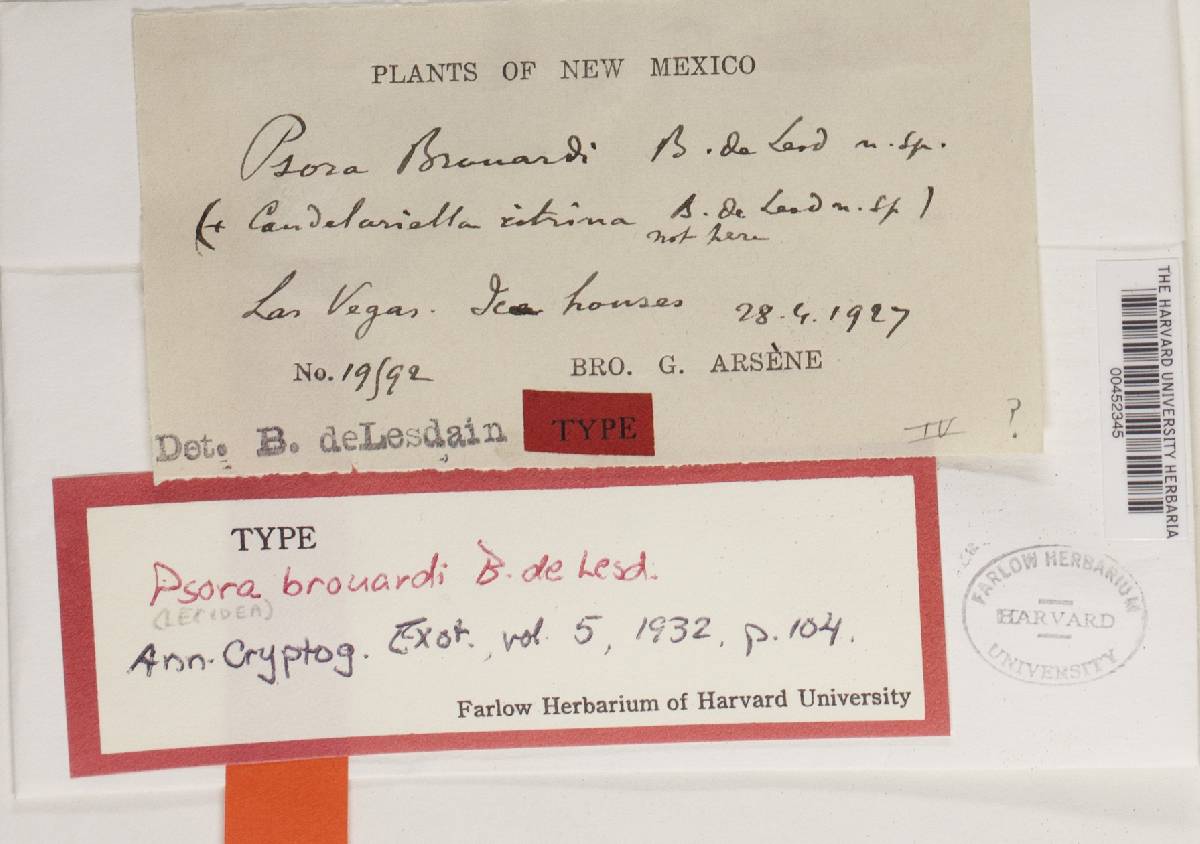 PLANTS OF NEW MEXICO
Psora Brouardi B. de Lesd n. sp.
(+ Candelariella citrina B. de Lesd n. sp)
not here
Las Vegas. Ice houses 28.4.1927
No. 19592 BRO. G. ARSÈNE
Det. B. deLesdain TYPE
IV ?
TYPE
Psora brouardi B. de Lesd.
(LECIDEA)
Ann. Cryptog. Exot., vol. 5, 1932, p. 104.
Farlow Herbarium of Harvard University
THE HARVARD UNIVERSITY HERBARIA
00452345
FARLOW HERBARIUM
HARVARD
UNIVERSITY